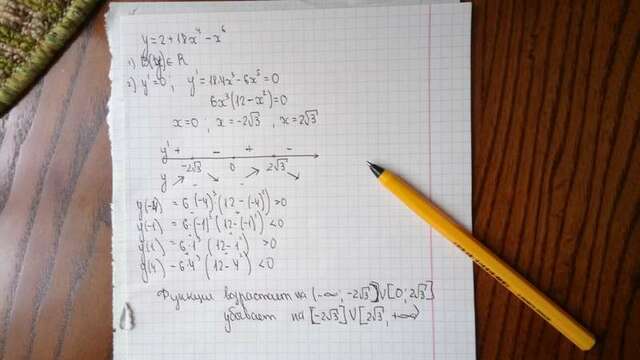 y=2+18x⁴-x⁶
1) D(y)∈R
2) y'=0; y'=18·4x³-6x⁵=0
6x³(12-x²)=0
x=0; x=-2√3, x=2√3
y' + - + -
-2√3 0 2√3
y ↗ ↘ ↗ ↘
y(-4) = 6·(-4)³(12-(-4)²)>0
y(-1) = 6·(-1)³(12-(-1)²)<0
y(1) = 6·1³(12-1²) >0
y(4) = 6·4³(12-4²)<0
Функция возрастает на (-∞; -2√3]V[0; 2√3]
убывает на [-2√3]V[2√3, +∞)